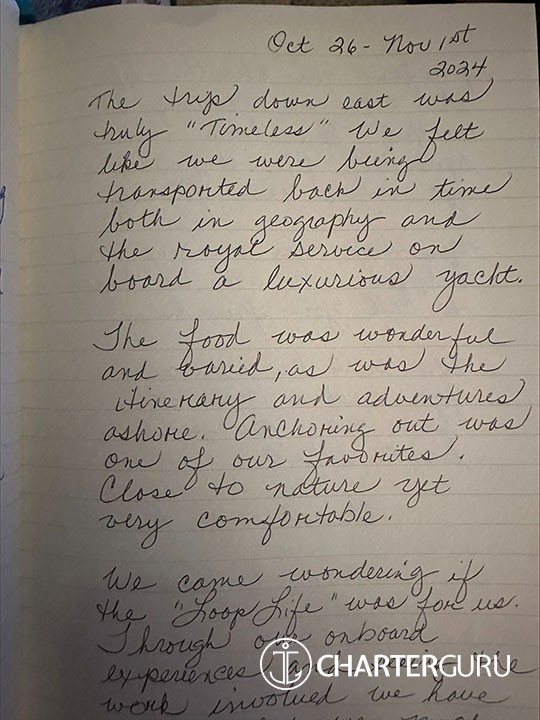 Oct 26 - Nov 1st
2024
The trip down east was
truly "Timeless" We felt
like we were being
transported back in time
both in geography and
the royal service on
board a luxurious yacht.
The food was wonderful
and varied, as was the
itinerary and adventures
ashore. Anchoring out was
one of our favorites.
Close to nature yet
very comfortable.
We came wondering if
the "Loop Life" was for us.
Through our onboard
experiences and seeing the
CHARTERGURU
work involved we have